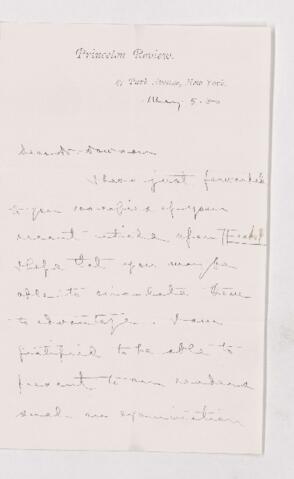 Princeton Review.
Park Avenue, New York.
May 5.
Dear Dr. Dawson
I have just forwarded
to you copies of your
recent article upon
I hope that you may be
able to circulate them
to advantage. I am
gratified to be able to
present to our readers
such an